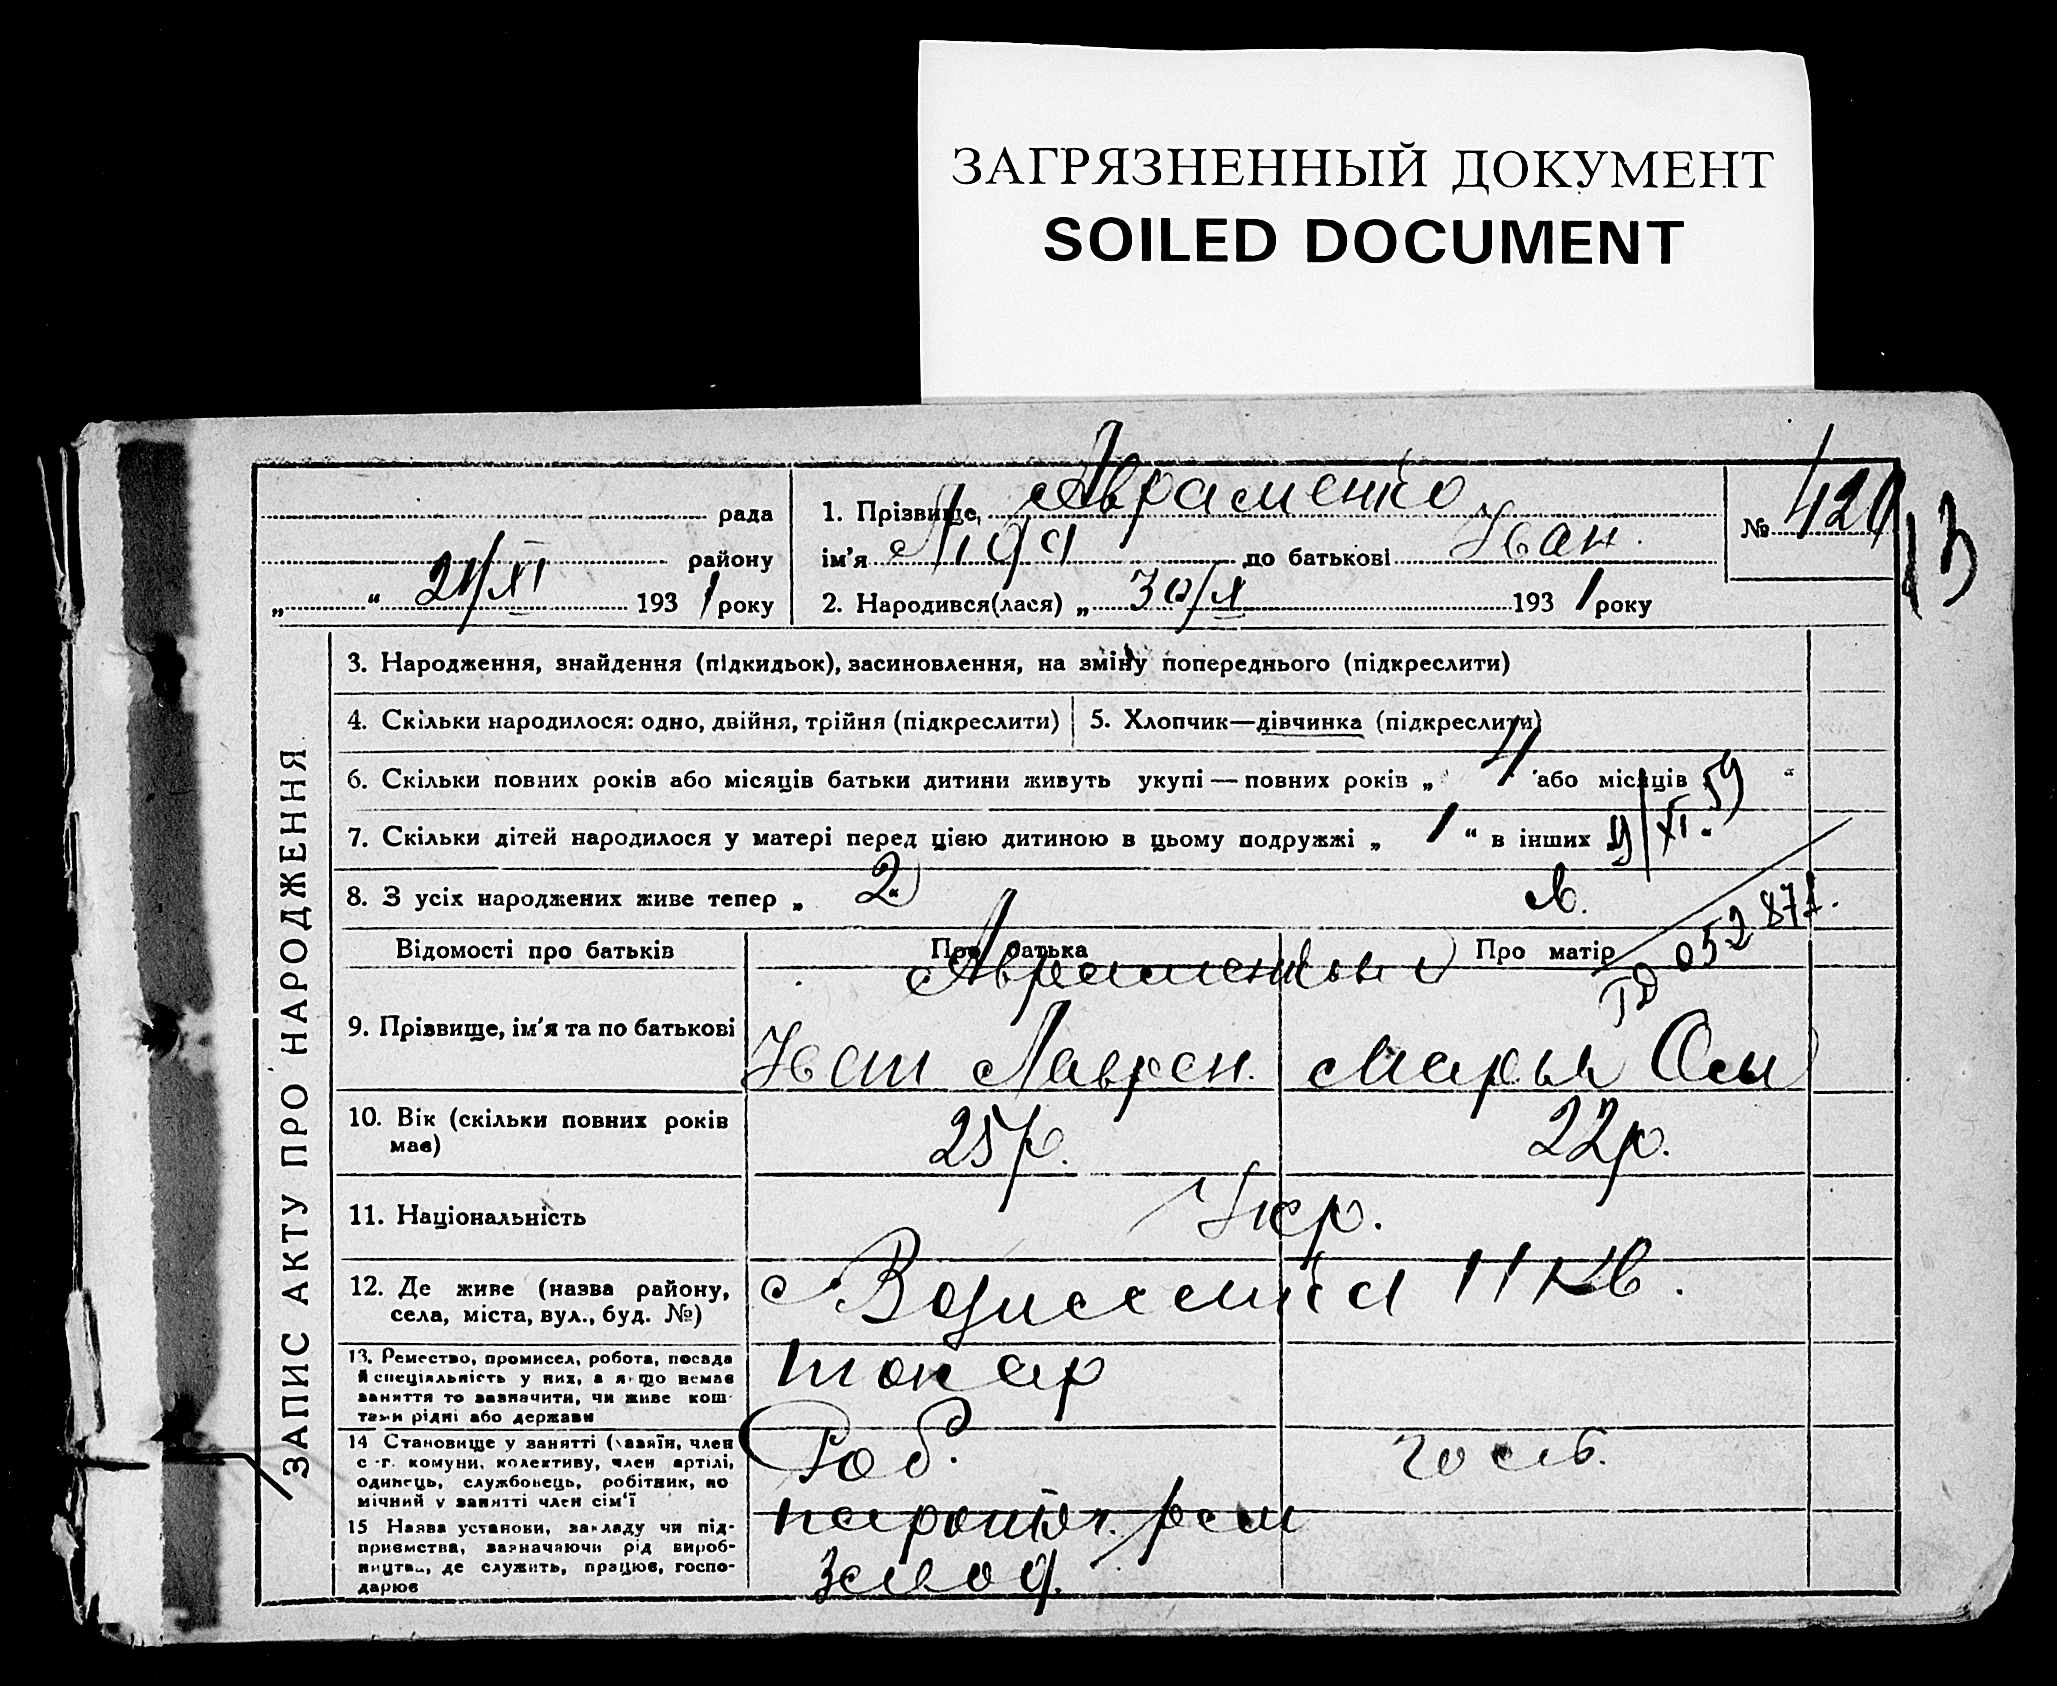 ЗАГРЯЗНЕННЫЙ ДОКУМЕНТ
SOILED DOCUMENT
рада
району
„ “ 21/XI 1931 року
1. Прізвище, Авраменко
ім'я Ліда по батькові Іван.
2. Народився(лася) „ 30/X 1931 року
№ 420
13
ЗАПИС АКТУ ПРО НАРОДЖЕННЯ
3. Народження, знайдення (підкидьок), засиновлення, на зміну попереднього (підкреслити)
4. Скільки народилося: одно, двійня, трійня (підкреслити)
5. Хлопчик—дівчинка (підкреслити)
6. Скільки повних років або місяців батьки дитини живуть укупі — повних років „ 4 або місяців “
7. Скільки дітей народилося у матері перед цією дитиною в цьому подружжі „ 1 “ в інших „
9/XI 59
8. З усіх народжених живе тепер „ 2
052871.
Відомості про батьків
Про батька
Про матір
9. Прізвище, ім'я та по батькові
Авраменки
Іван Лаврен.
Марья
10. Вік (скільки повних років має)
25 р.
22 р.
11. Національність
Укр.
12. Де живе (назва району,
села, міста, вул., буд. №)
с Вознесенка 11 кв.
13. Ремество, промисел, робота, посада
й спеціяльність у них, а якщо немає
заняття то зазначити, чи живе кош-
тами рідні або держави
токар
14 Становище у занятті (хазяїн, член
с.-г. комуни, колективу, член артілі,
одинець, службовець, робітник, по
мічний у занятті член сім'ї
Роб.
госп.
15 Назва установи, закладу чи під-
приємства, зазначаючи рід вироб-
ництва, де служить, працює, госпо-
дарює
паротяг. рем
завод.